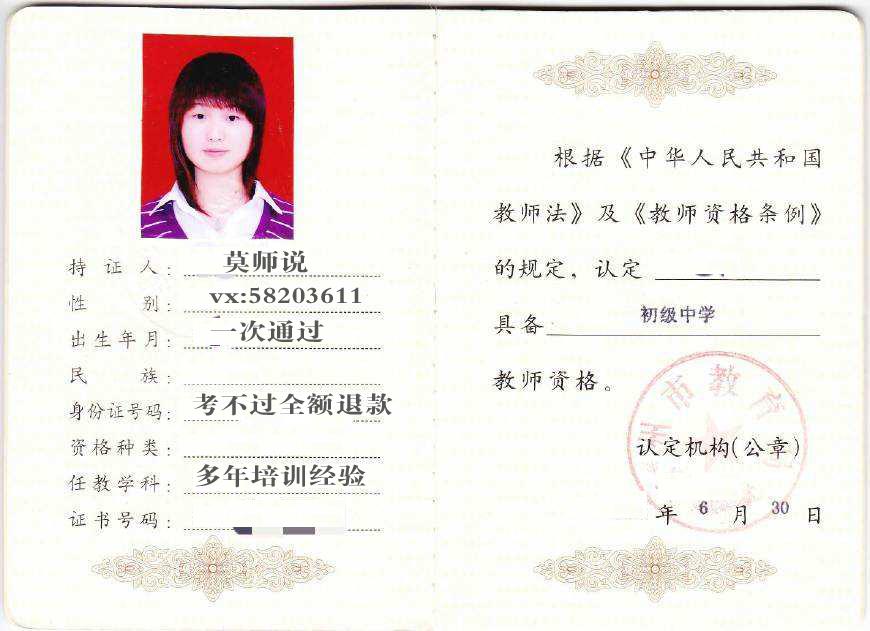 持证人：莫师说
性别：vx:58203611
出生年月：一次通过
民族：
身份证号码：考不过全额退款
资格种类：
任教学科：多年培训经验
证书号码：
根据《中华人民共和国
教师法》及《教师资格条例》
的规定，认定
具备 初级中学
教师资格。
州市教育
认定机构(公章)
年 6 月 30 日